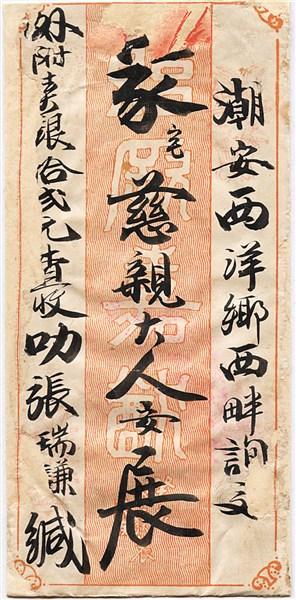 潮安西洋鄉西畔詢交
家宅慈親大人安展
外附銀拾弍元查收叻張瑞謙緘